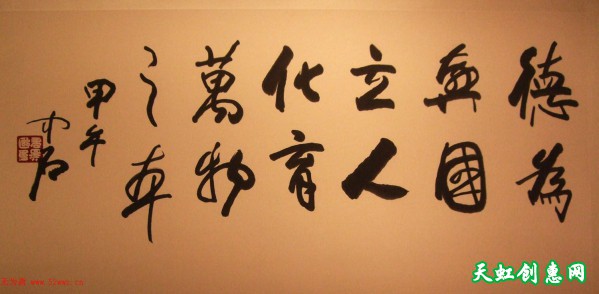 德為
興國
立人
化育
萬物
之本
甲午
中石
天虹创惠网